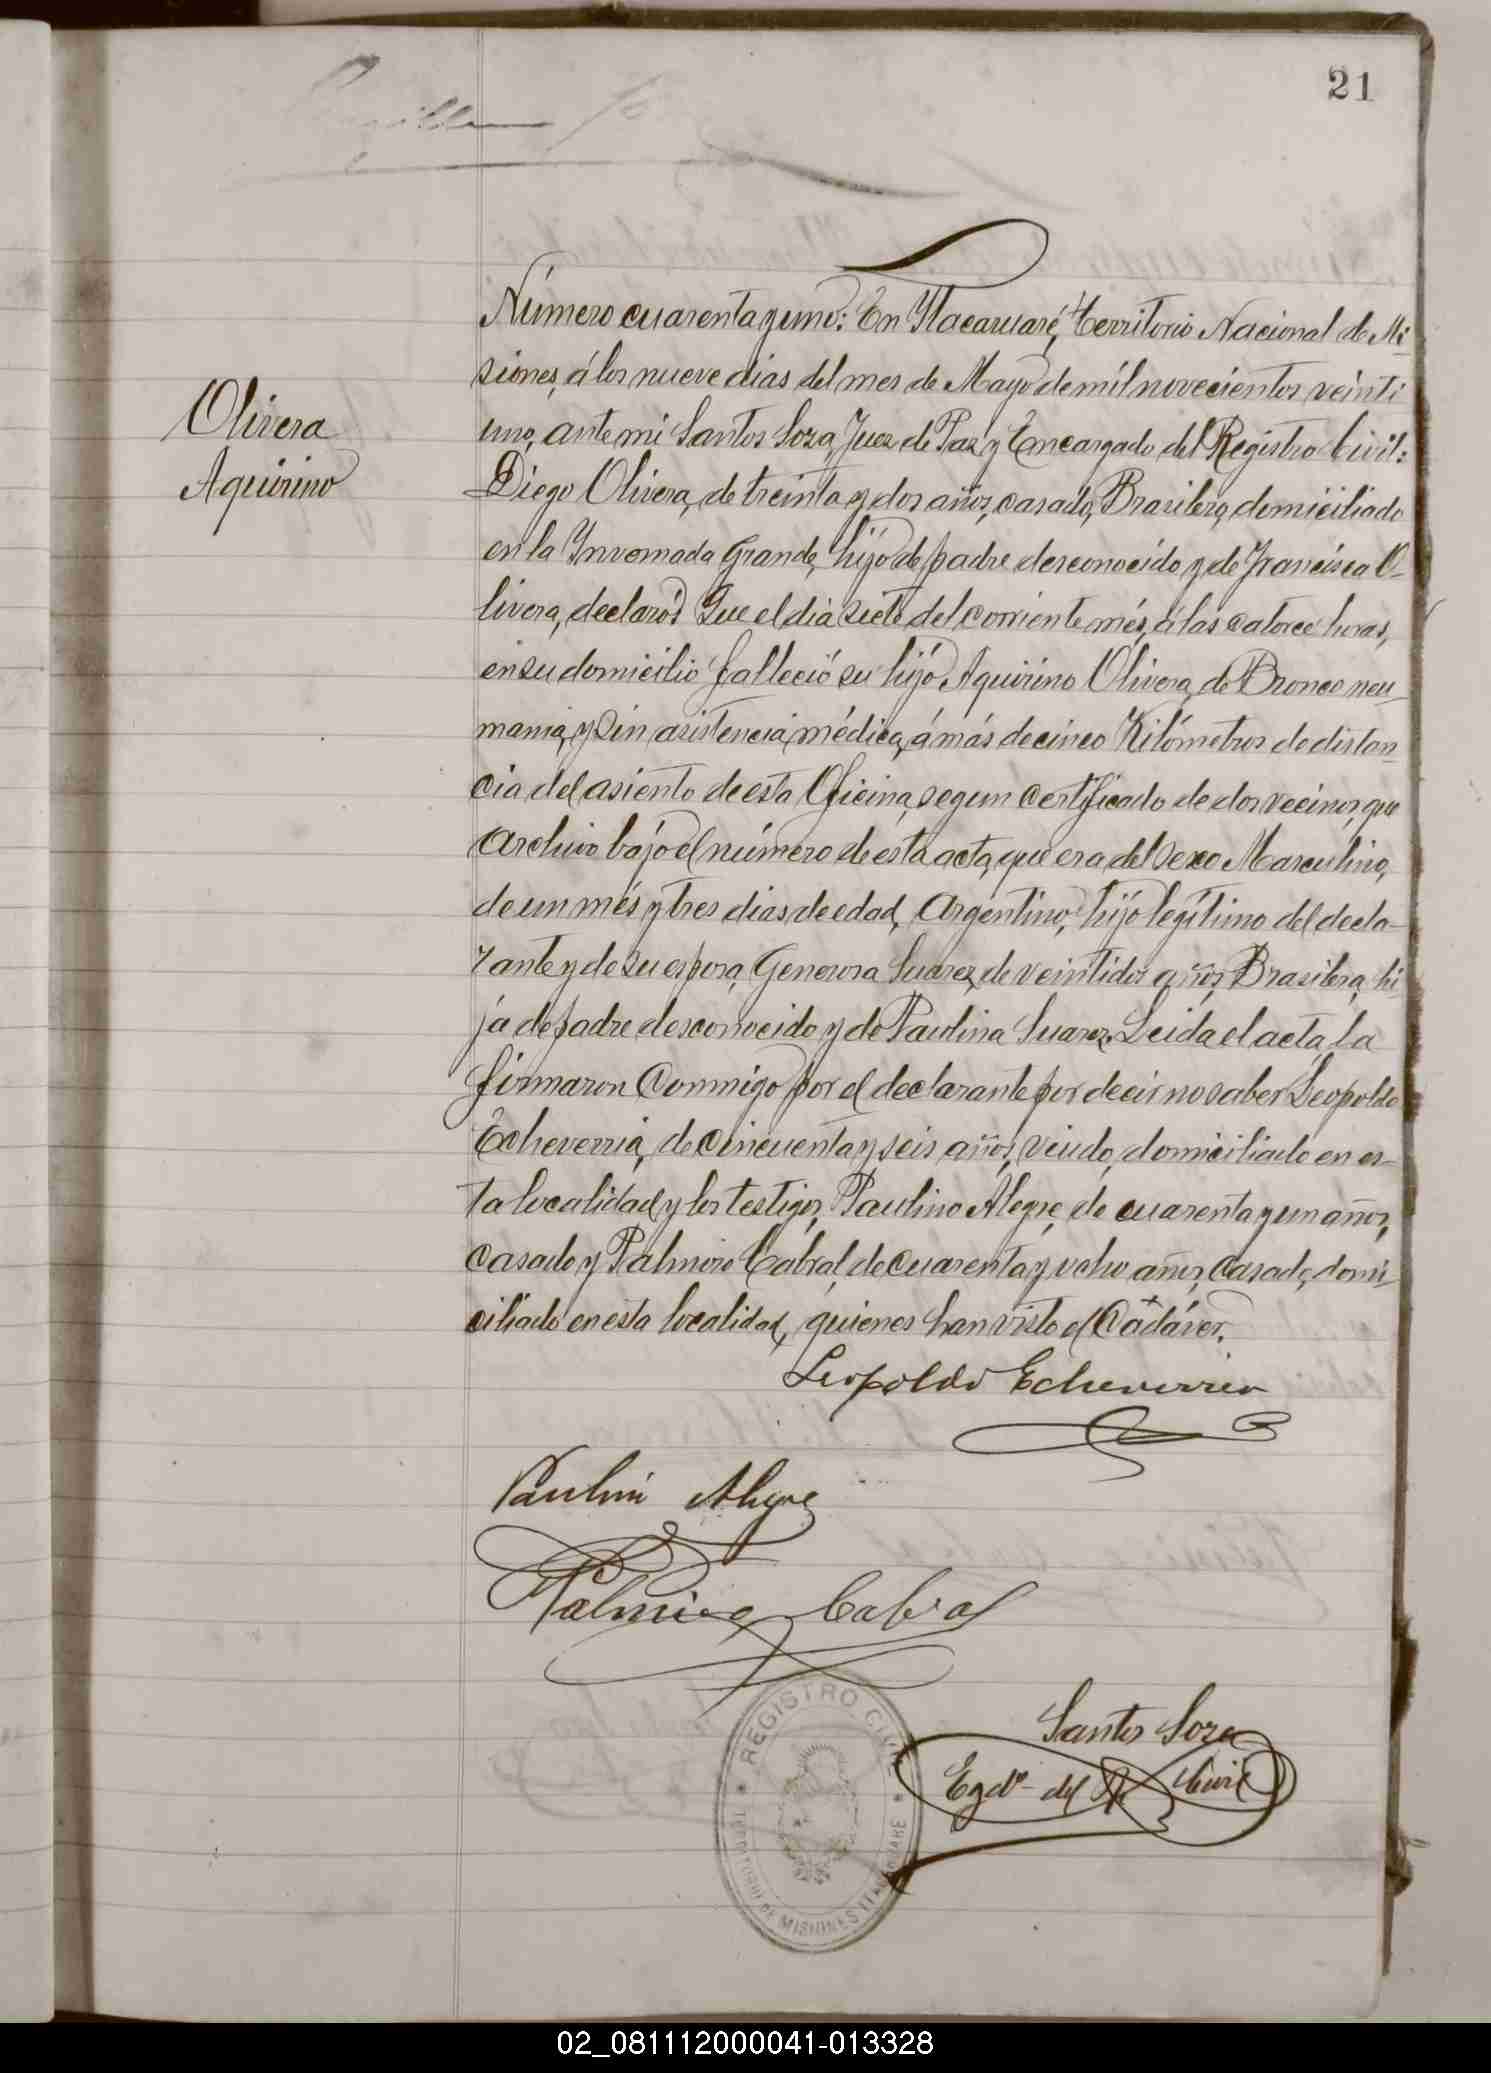 21
Olivera
Aquirino
Número cuarenta y uno: En Ytacaruaré, Territorio Nacional de Mi-
siones, á los nueve dias del mes de Mayo de mil novecientos veinti
uno, ante mi Santos Soza, Juez de Paz y Encargado del Registro Civil:
Diego Olivera, de treinta y dos años, casado, Brasilero, domiciliado
en la Invernada Grande, hijo de padre desconocido y de Francisca O-
livera, declaró: Que el dia siete del corriente més, á las catorce horas,
en su domicilio falleció su hijo Aquirino Olivera, de Bronco neu-
mania, y sin asistencia médica, á más de cinco Kilómetros de distan-
cia del asiento de esta Oficina, segun certificado de dos vecinos, que
archivo bajo el número de esta acta, que era del sexo Masculino,
de un més y tres dias de edad, Argentino, hijo legítimo del decla-
rante y de su esposa, Generosa Suarez, de veintidos años, Brasilera, hi-
ja de padre desconocido y de Paulina Suarez. Leida el acta, la
firmaron conmigo por el declarante por decir no saber Leopoldo
Echeverria, de cincuenta y seis años, viudo, domiciliado en es-
ta localidad, y los testigos, Paulino Alegre, de cuarenta y un años,
casado y Palmiro Cabral, de cuarenta y ocho años, casado, domi-
ciliado en esta localidad, quienes han visto el Cadáver.
Leopoldo Echeverria
Paulino Alegre
Palmiro Cabral
Santos Soza
Egdo del R. Civil
REGISTRO CIVIL
TERRITORIO DE MISIONES ITACARUARE
02_081112000041-013328